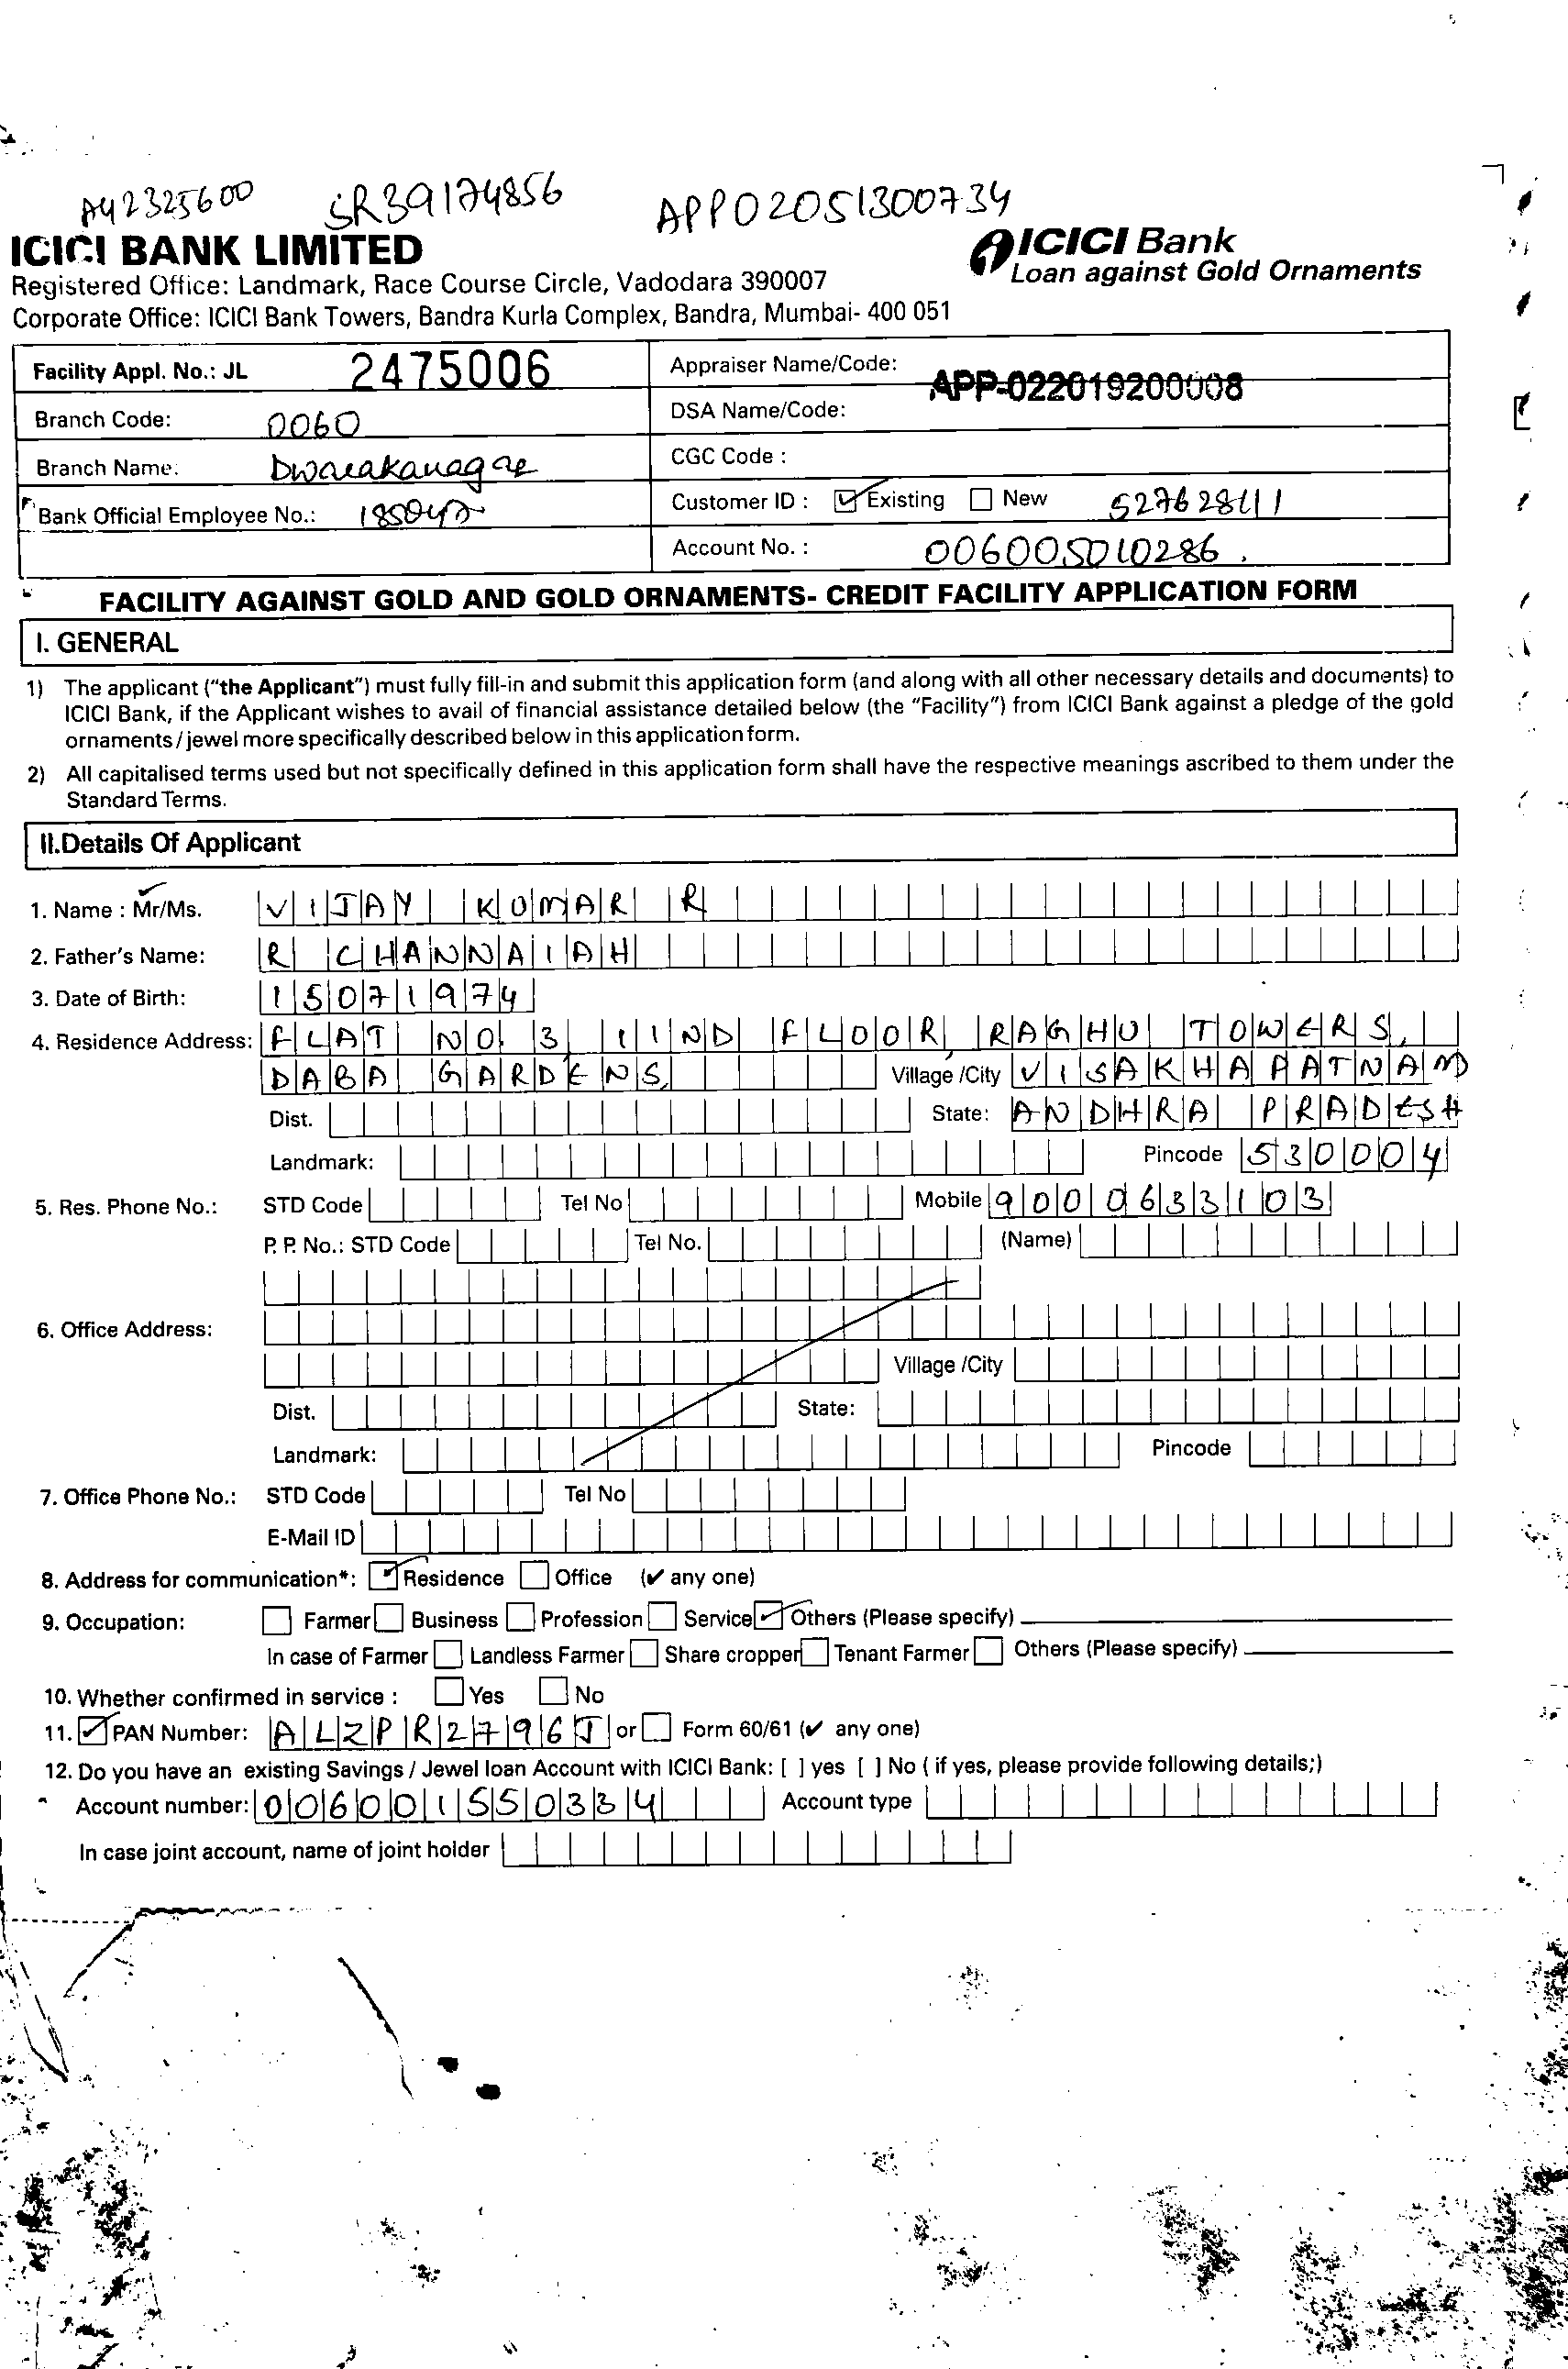 A42325600 SR39174856 APP02051300734
ICICI BANK LIMITED
ICICI Bank
Registered Office: Landmark, Race Course Circle, Vadodara 390007
Loan against Gold Ornaments
Corporate Office: ICICI Bank Towers, Bandra Kurla Complex, Bandra, Mumbai- 400 051
Facility Appl. No.: JL 2475006
Appraiser Name/Code: APP-022019200008
Branch Code: 0060
DSA Name/Code:
Branch Name: Dwarakanagar
CGC Code :
Bank Official Employee No.:
Customer ID : Existing New 527628111
Account No. : 006005010286
FACILITY AGAINST GOLD AND GOLD ORNAMENTS- CREDIT FACILITY APPLICATION FORM
I. GENERAL
1) The applicant ("the Applicant") must fully fill-in and submit this application form (and along with all other necessary details and documents) to
ICICI Bank, if the Applicant wishes to avail of financial assistance detailed below (the "Facility") from ICICI Bank against a pledge of the gold
ornaments/jewel more specifically described below in this application form.
2) All capitalised terms used but not specifically defined in this application form shall have the respective meanings ascribed to them under the
Standard Terms.
II.Details Of Applicant
1. Name : Mr/Ms. VIJAY KUMAR R
2. Father's Name: R CHANNAIAH
3. Date of Birth: 15071974
4. Residence Address: FLAT NO 3 IIND FLOOR, RAGHU TOWERS,
DABA GARDENS, Village /City VISAKHAPATNAM
Dist. State: ANDHRA PRADESH
Landmark: Pincode 530004
5. Res. Phone No.: STD Code Tel No Mobile 9000633103
P. P. No.: STD Code Tel No. (Name)
6. Office Address:
Village /City
Dist. State:
Landmark: Pincode
7. Office Phone No.: STD Code Tel No
E-Mail ID
8. Address for communication*: Residence Office (✔ any one)
9. Occupation: Farmer Business Profession Service Others (Please specify)
In case of Farmer Landless Farmer Share cropper Tenant Farmer Others (Please specify)
10. Whether confirmed in service : Yes No
11. PAN Number: ALZPR2796J or Form 60/61 (✔ any one)
12. Do you have an existing Savings / Jewel loan Account with ICICI Bank: [ ] yes [ ] No ( if yes, please provide following details;)
Account number: 006001550334 Account type
In case joint account, name of joint holder